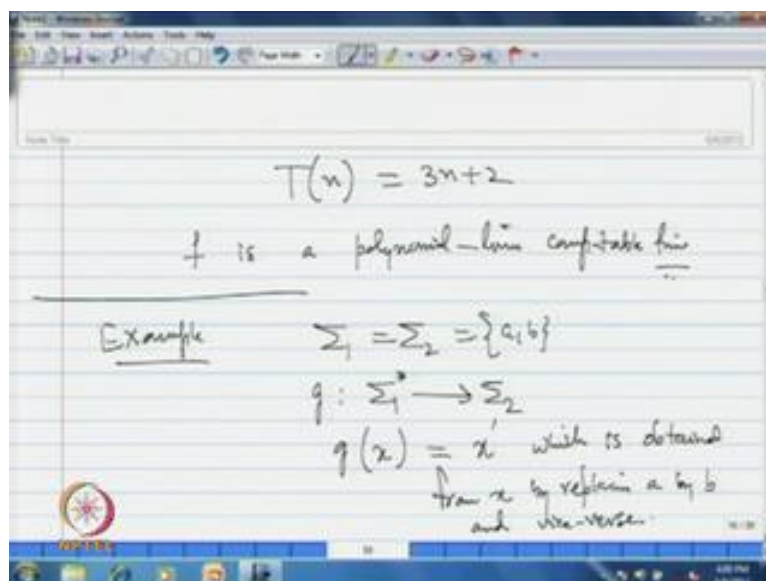 File Edit View Insert Actions Tools Help
Page Width
Note Title
T(n) = 3n+2
f is a polynomial-time computable func
Example Σ₁ = Σ₂ = {a,b}
g : Σ₁* → Σ₂
g(x) = x' which is obtained
from x by replacin a by b
and vice-verse.
NPTEL